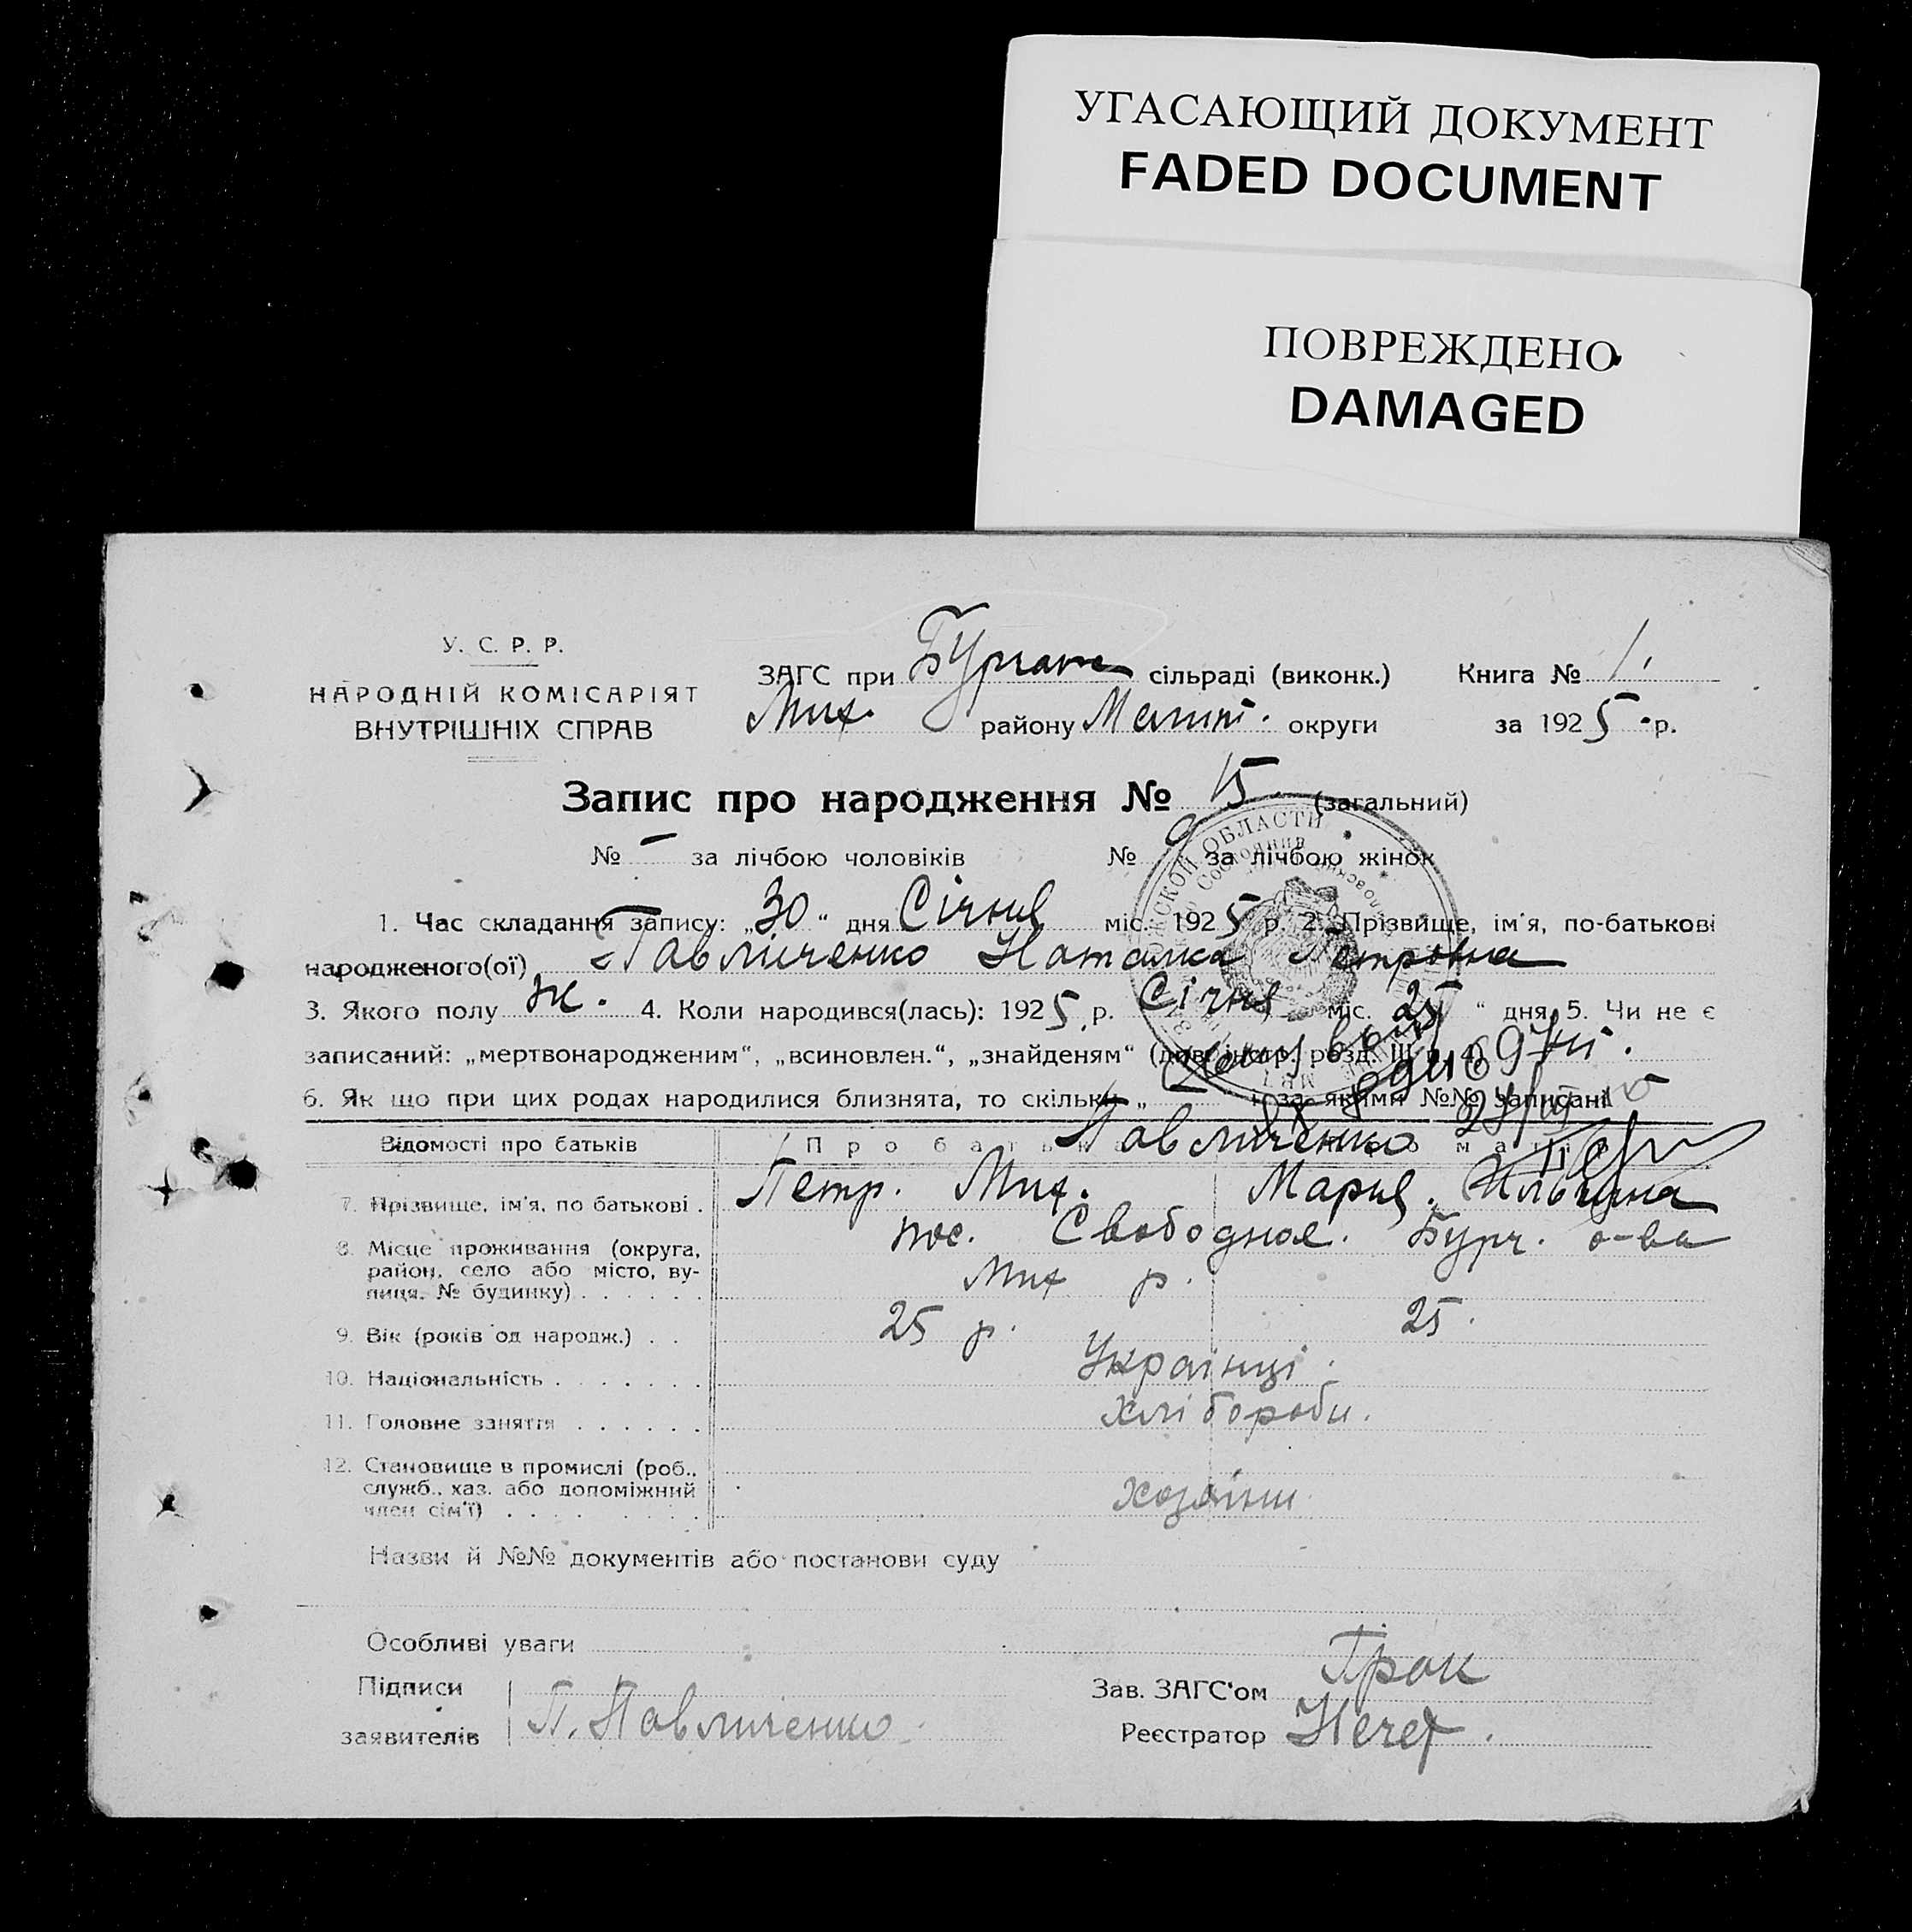 УГАСАЮЩИЙ ДОКУМЕНТ
FADED DOCUMENT
ПОВРЕЖДЕНО
DAMAGED
У. С. Р. Р.
НАРОДНІЙ КОМІСАРІЯТ
ВНУТРІШНІХ СПРАВ
ЗАГС при сільраді (виконк.) Книга № 1.
Мих. району Меліт. округи за 1925 р.
Запис про народження № 15. (загальний)
№ – за лічбою чоловіків № 9 за лічбою жінок
1. Час складання запису: „30“ дня Січня міс. 1925 р. 2. Прізвище, ім'я, по-батькові
народженого(ої) Павліченко Наталка Петровна
3. Якого полу ж. 4. Коли народився(лась): 1925 р. Січня міс. 25 “ дня 5. Чи не є
записаний: „мертвонародженим“, „всиновлен.“, „знайденям“ (див. інстр. розд. III п. 4)
6. Як що при цих родах народилися близнята, то скільки „ – “ і за якими №№ записані
Відомості про батьків Про батька м а
Павличенко
7. Прізвище, ім'я, по батькові . Петр. Мих. Мария.
8. Місце проживання (округа, район, село або місто, ву- лиця, № будинку) . . . . . . пос. Свободная. Бурч. о-ва
Мих р.
9. Вік (років од народж.) . . 25 р. 25.
10. Національність . . . . . . . Українці.
11. Головне заняття . . . . . . Хлібороби.
12. Становище в промислі (роб., служб., хаз. або допоміжний член сім'ї) . . . . . . . . хозяїни
Назви й №№ документів або постанови суду
Особливі уваги
Підписи
заявителів П. Павличенко.
Зав. ЗАГС'ом
Реєстратор